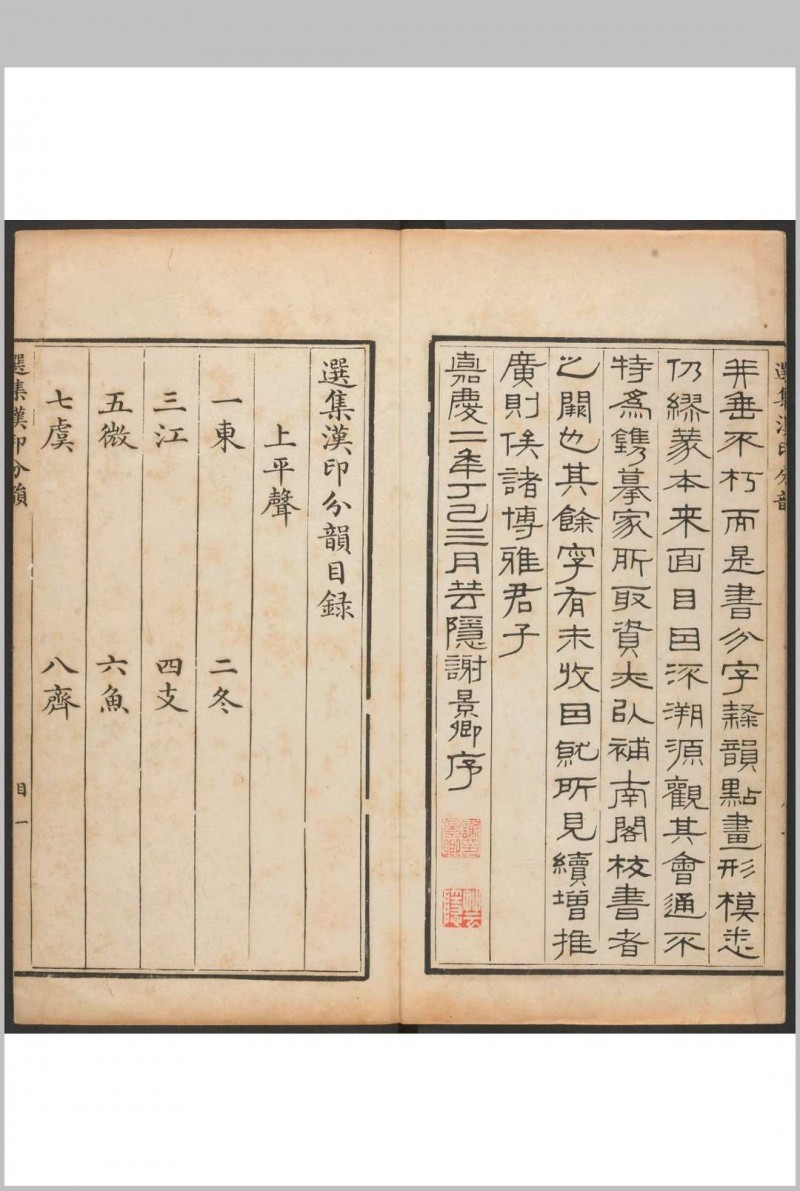 選集漢印分韻
并垂不朽而是書分字隸韻點畫形模悉
仍繆篆本来面目因流溯源觀其會通不
特爲鐫摹家所取資夫以補南閣校書者
之闕也其餘字有未收因就所見續增推
廣則俟諸博雅君子
嘉慶二年丁巳三月芸隱謝景卿序
選集漢印分韻目録
上平聲
一東 二冬
三江 四支
五微 六魚
七虞 八齊
選集漢印分韻
目一